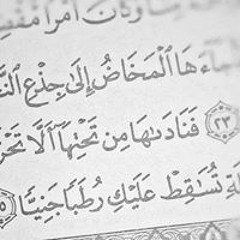 وَكَانَ أَمْرًا مَّقْضِ
جَآءَهَا ٱلْمَخَاضُ إِلَىٰ جِذْعِ ٱلنَّ
٢٣ فَنَادَىٰهَا مِن تَحْتِهَآ أَلَّا تَحْزَ
لَةِ تُسَٰقِطْ عَلَيْكِ رُطَبًا جَنِيًّا ٥